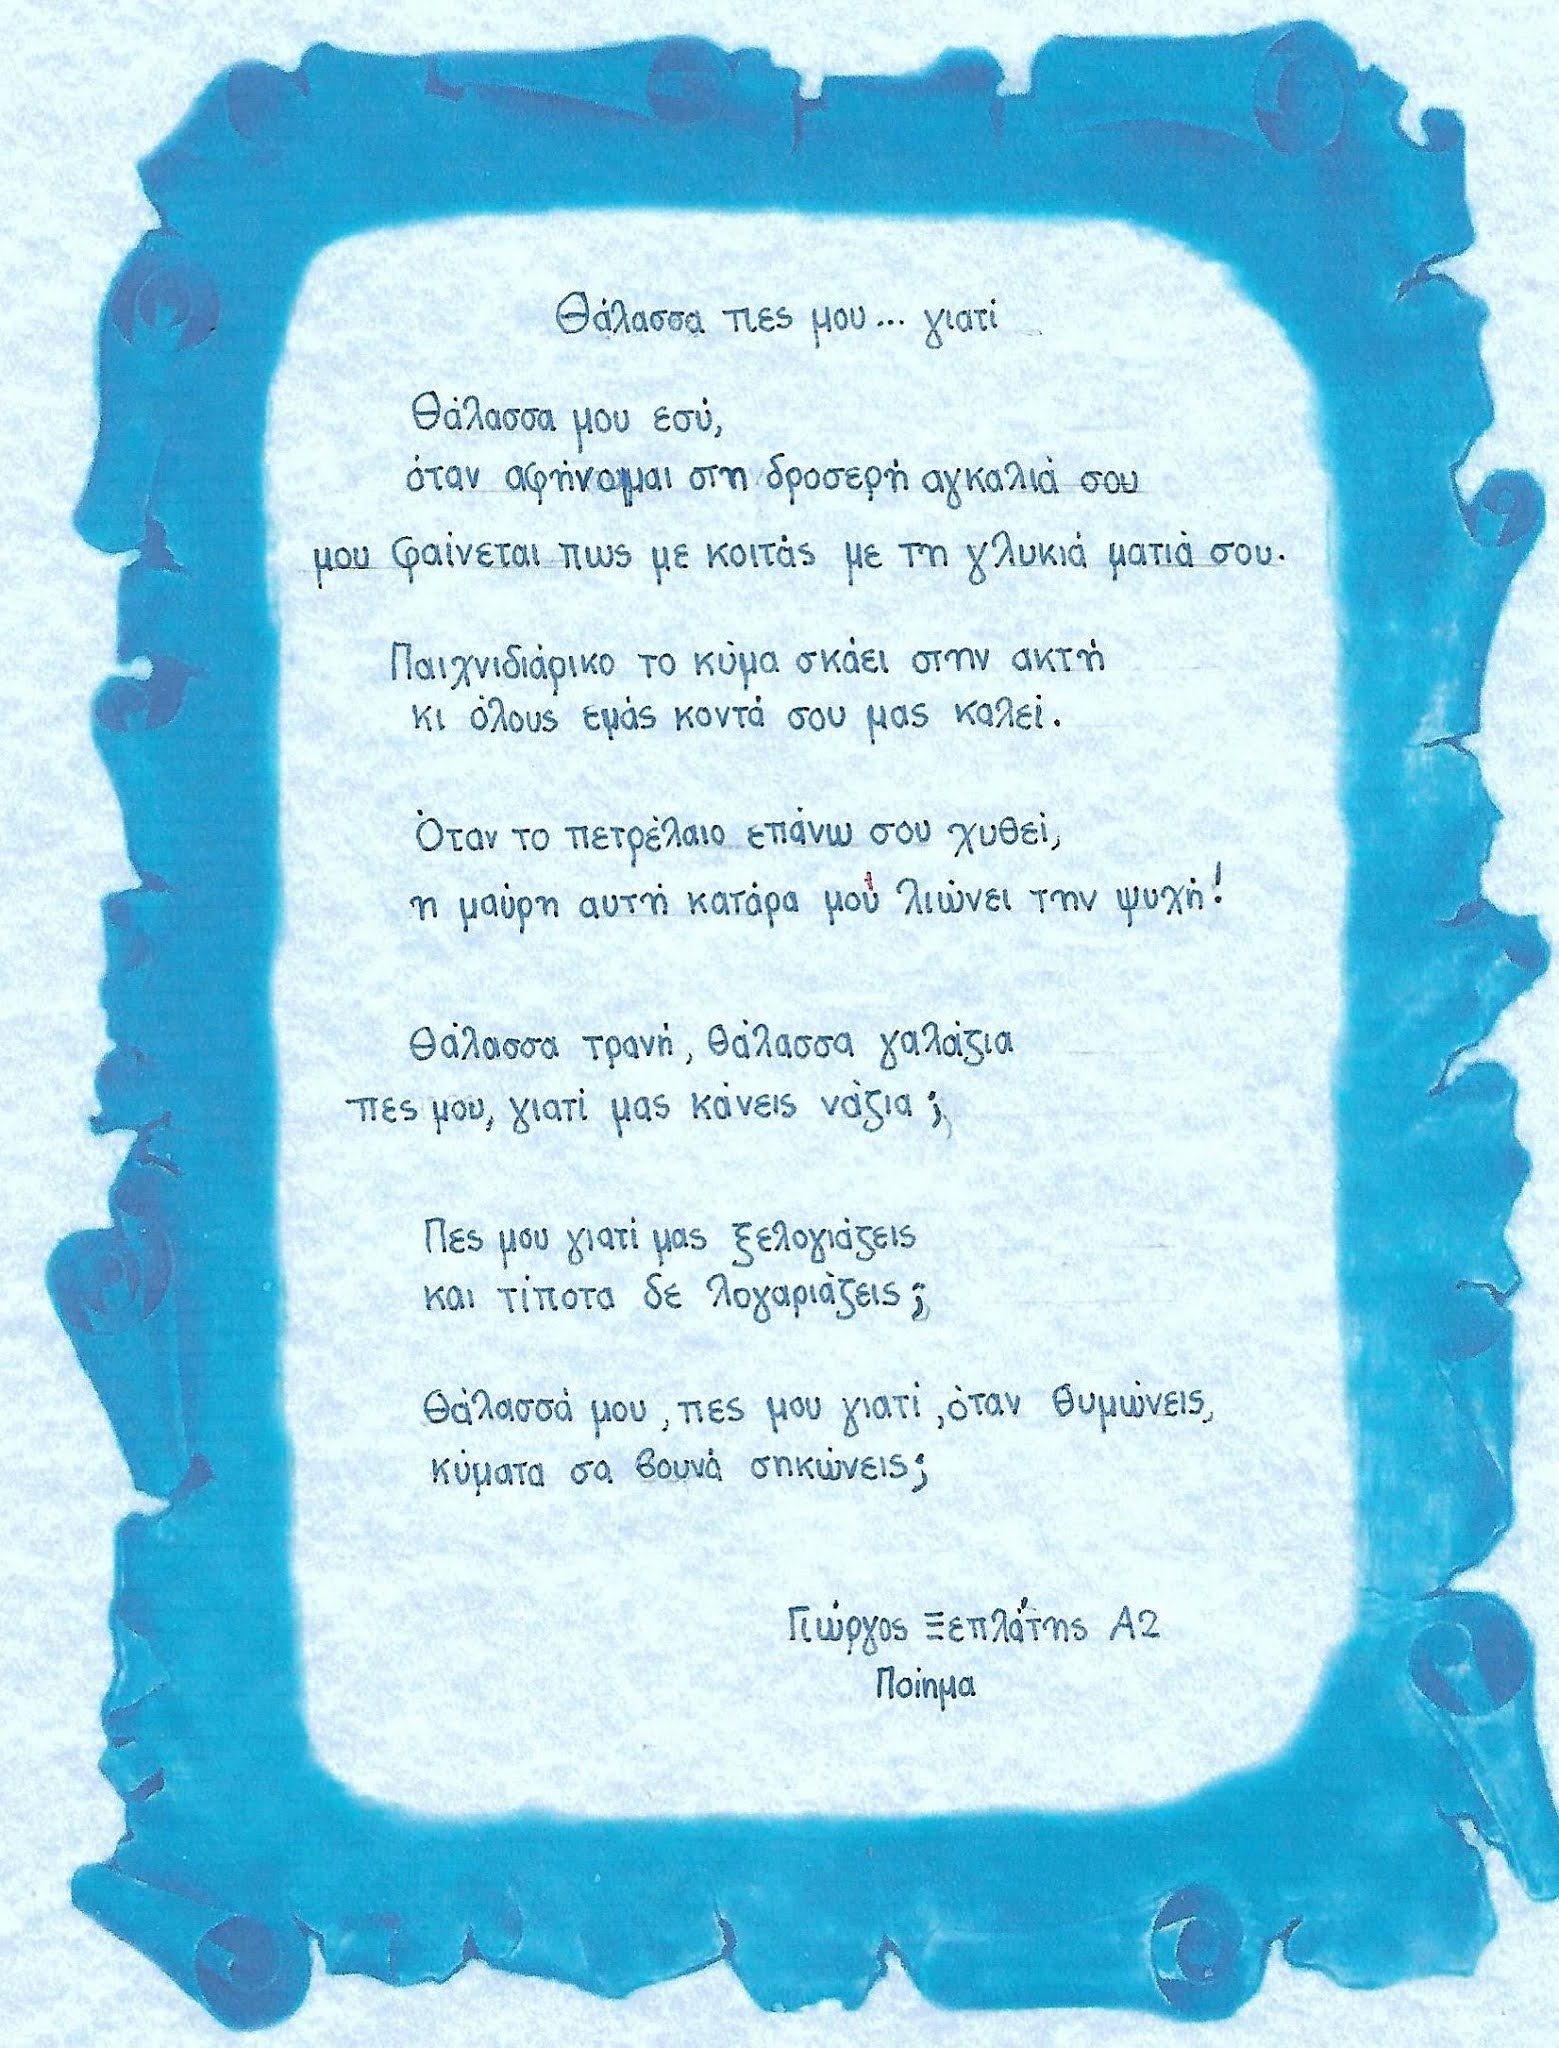 Θάλασσα πες μου... γιατί
Θάλασσα μου εσύ,
όταν αφήνομαι στη δροσερή αγκαλιά σου
μου φαίνεται πως με κοιτάς με τη γλυκιά ματιά σου.
Παιχνιδιάρικο το κύμα σκάει στην ακτή
κι όλους εμάς κοντά σου μας καλεί.
Όταν το πετρέλαιο επάνω σου χυθεί,
η μαύρη αυτή κατάρα μού λιώνει την ψυχή!
Θάλασσα τρανή, θάλασσα γαλάζια
πες μου, γιατί μας κάνεις νάζια;
Πες μου γιατί μας ξελογιάζεις
και τίποτα δε λογαριάζεις;
Θάλασσά μου, πες μου γιατί, όταν θυμώνεις,
κύματα σα βουνά σηκώνεις;
Γιώργος Ξεπλάτης Α2
Ποίημα